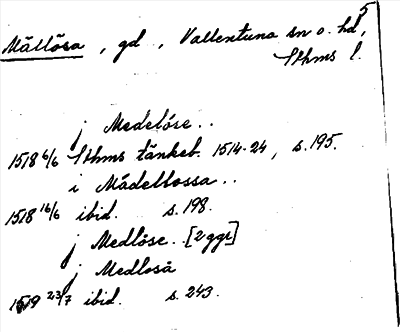 5
Mällösa, gd, Vallentuna sn o. hd,
Sthms l.
j Medelöse..
1518 6/6 Sthms tänkeb. 1514-24, s.195.
i Mädellossa..
1518 16/6 ibid. s.198.
j Medlöse..[2 ggr]
j Medloså
1519 23/7 ibid. s.243.